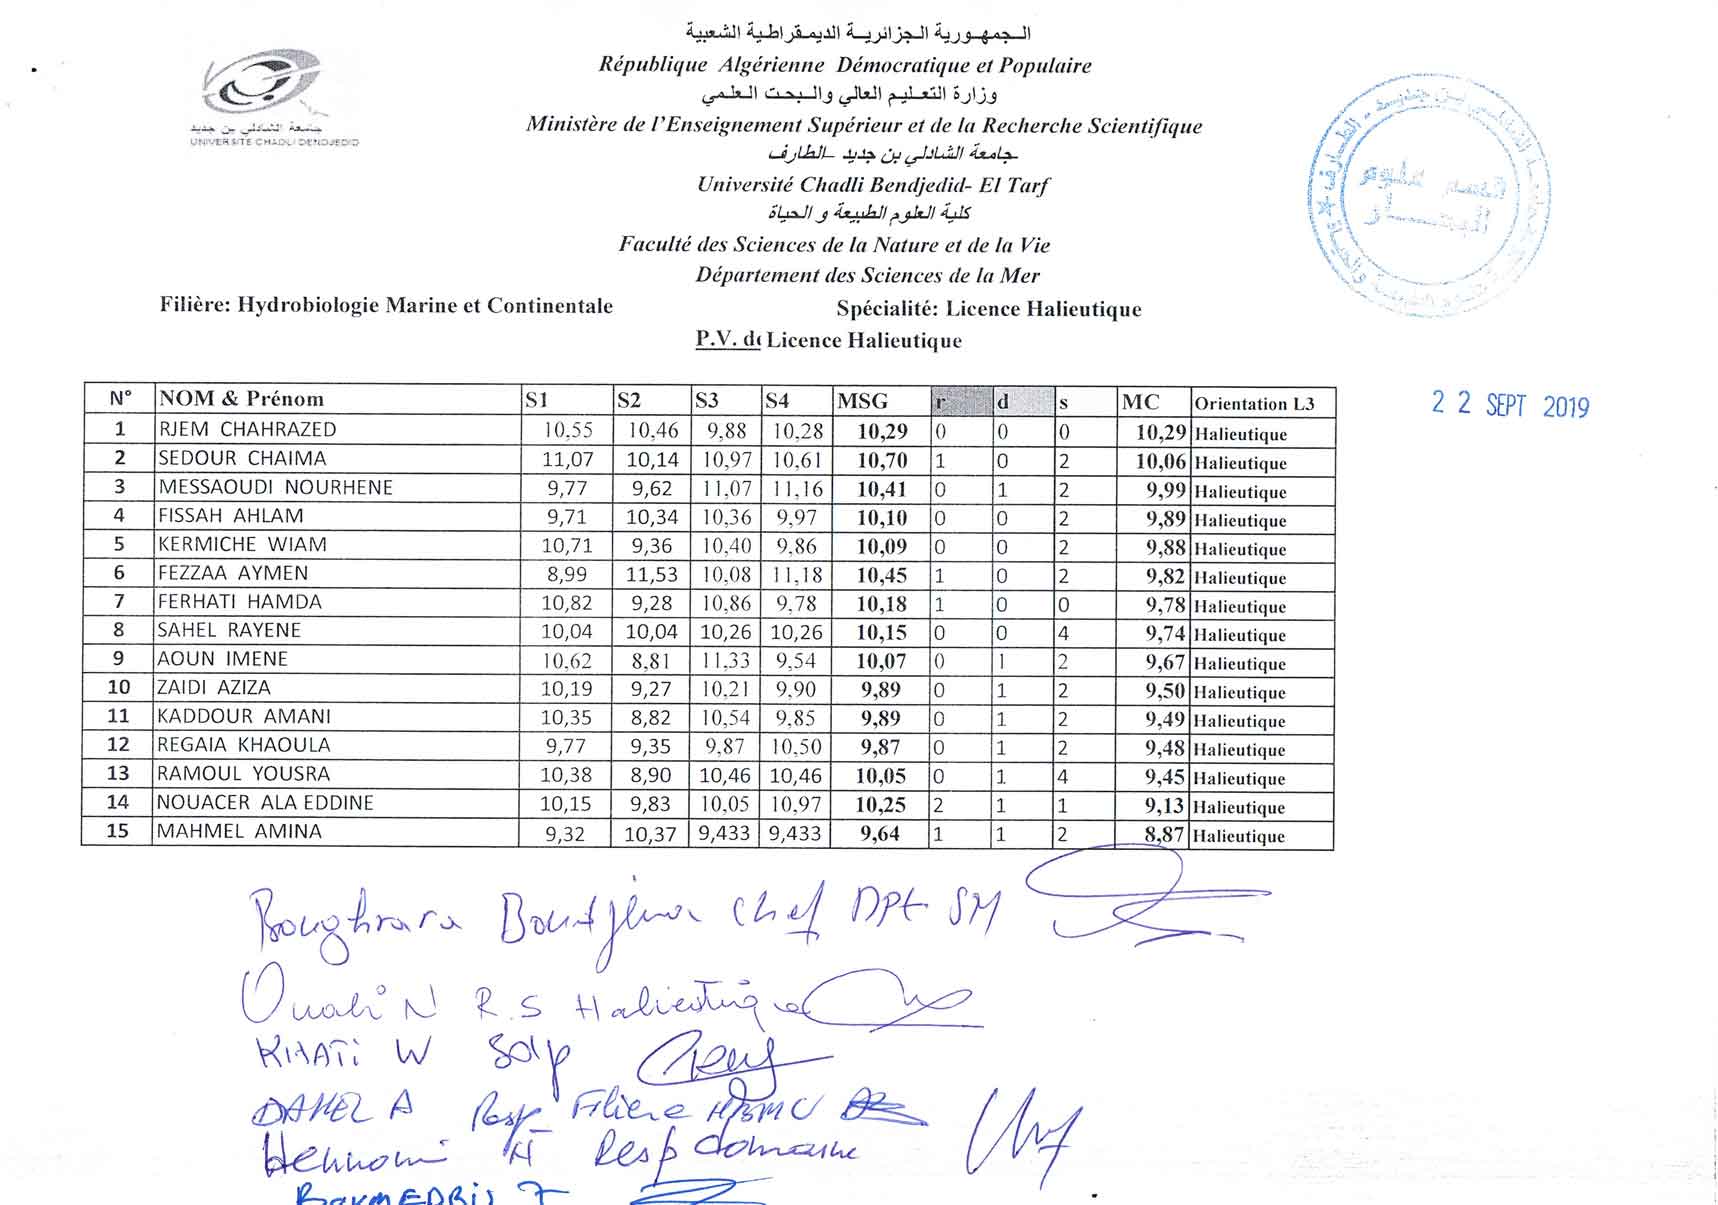 الـجمهـورية الـجزائريـة الديمـقراطـية الشعبية
République Algérienne Démocratique et Populaire
وزارة التعليم العالي والبحث العلمي
Ministère de l'Enseignement Supérieur et de la Recherche Scientifique
جامعة الشادلي بن جديد –الطارف
Université Chadli Bendjedid- El Tarf
كلية العلوم الطبيعة و الحياة
Faculté des Sciences de la Nature et de la Vie
Département des Sciences de la Mer
جامعة الشاذلي بن جديد
UNIVERSITE CHADLI BENDJEDID
قسم علوم
البحار
Filière: Hydrobiologie Marine et Continentale Spécialité: Licence Halieutique
P.V. de Licence Halieutique
22 SEPT 2019
N° NOM & Prénom S1 S2 S3 S4 MSG r d s MC Orientation L3
1 RJEM CHAHRAZED 10,55 10,46 9,88 10,28 10,29 0 0 0 10,29 Halieutique
2 SEDOUR CHAIMA 11,07 10,14 10,97 10,61 10,70 1 0 2 10,06 Halieutique
3 MESSAOUDI NOURHENE 9,77 9,62 11,07 11,16 10,41 0 1 2 9,99 Halieutique
4 FISSAH AHLAM 9,71 10,34 10,36 9,97 10,10 0 0 2 9,89 Halieutique
5 KERMICHE WIAM 10,71 9,36 10,40 9,86 10,09 0 0 2 9,88 Halieutique
6 FEZZAA AYMEN 8,99 11,53 10,08 11,18 10,45 1 0 2 9,82 Halieutique
7 FERHATI HAMDA 10,82 9,28 10,86 9,78 10,18 1 0 0 9,78 Halieutique
8 SAHEL RAYENE 10,04 10,04 10,26 10,26 10,15 0 0 4 9,74 Halieutique
9 AOUN IMENE 10,62 8,81 11,33 9,54 10,07 0 1 2 9,67 Halieutique
10 ZAIDI AZIZA 10,19 9,27 10,21 9,90 9,89 0 1 2 9,50 Halieutique
11 KADDOUR AMANI 10,35 8,82 10,54 9,85 9,89 0 1 2 9,49 Halieutique
12 REGAIA KHAOULA 9,77 9,35 9,87 10,50 9,87 0 1 2 9,48 Halieutique
13 RAMOUL YOUSRA 10,38 8,90 10,46 10,46 10,05 0 1 4 9,45 Halieutique
14 NOUACER ALA EDDINE 10,15 9,83 10,05 10,97 10,25 2 1 1 9,13 Halieutique
15 MAHMEL AMINA 9,32 10,37 9,433 9,433 9,64 1 1 2 8,87 Halieutique
Boughrara Boudjema Chef DPt SM
Ouali N R.S Halieutique
KHATI W
DAHEL A Resp Filière HBMC
Hennouni N Resp domaine